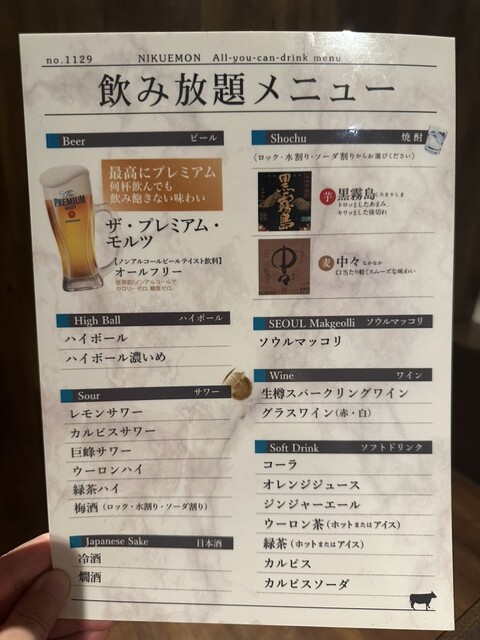 no.1129 NIKUEMON All-you-can-drink menu
飲み放題メニュー
Beer ビール
The
PREMIUM
MALT'S
最高にプレミアム
何杯飲んでも
飲み飽きない味わい
ザ・プレミアム・
モルツ
【ノンアルコールビールテイスト飲料】
オールフリー
世界初!ノンアルコールで
カロリーゼロ、糖質ゼロ。
High Ball ハイボール
ハイボール
ハイボール濃いめ
Sour サワー
レモンサワー
カルピスサワー
巨峰サワー
ウーロンハイ
緑茶ハイ
梅酒(ロック・水割り・ソーダ割り)
Japanese Sake 日本酒
冷酒
燗酒
Shochu 焼酎
(ロック・水割り・ソーダ割りからお選びください)
黒霧島
芋 黒霧島 くろきりしま
トロッとしたあまみ、
キリッとした後切れ
中々
麦 中々 なかなか
口当たり軽くスムーズな味わい
SEOUL Makgeolli ソウルマッコリ
ソウルマッコリ
Wine ワイン
生樽スパークリングワイン
グラスワイン(赤・白)
Soft Drink ソフトドリンク
コーラ
オレンジジュース
ジンジャーエール
ウーロン茶(ホットまたはアイス)
緑茶(ホットまたはアイス)
カルピス
カルピスソーダ